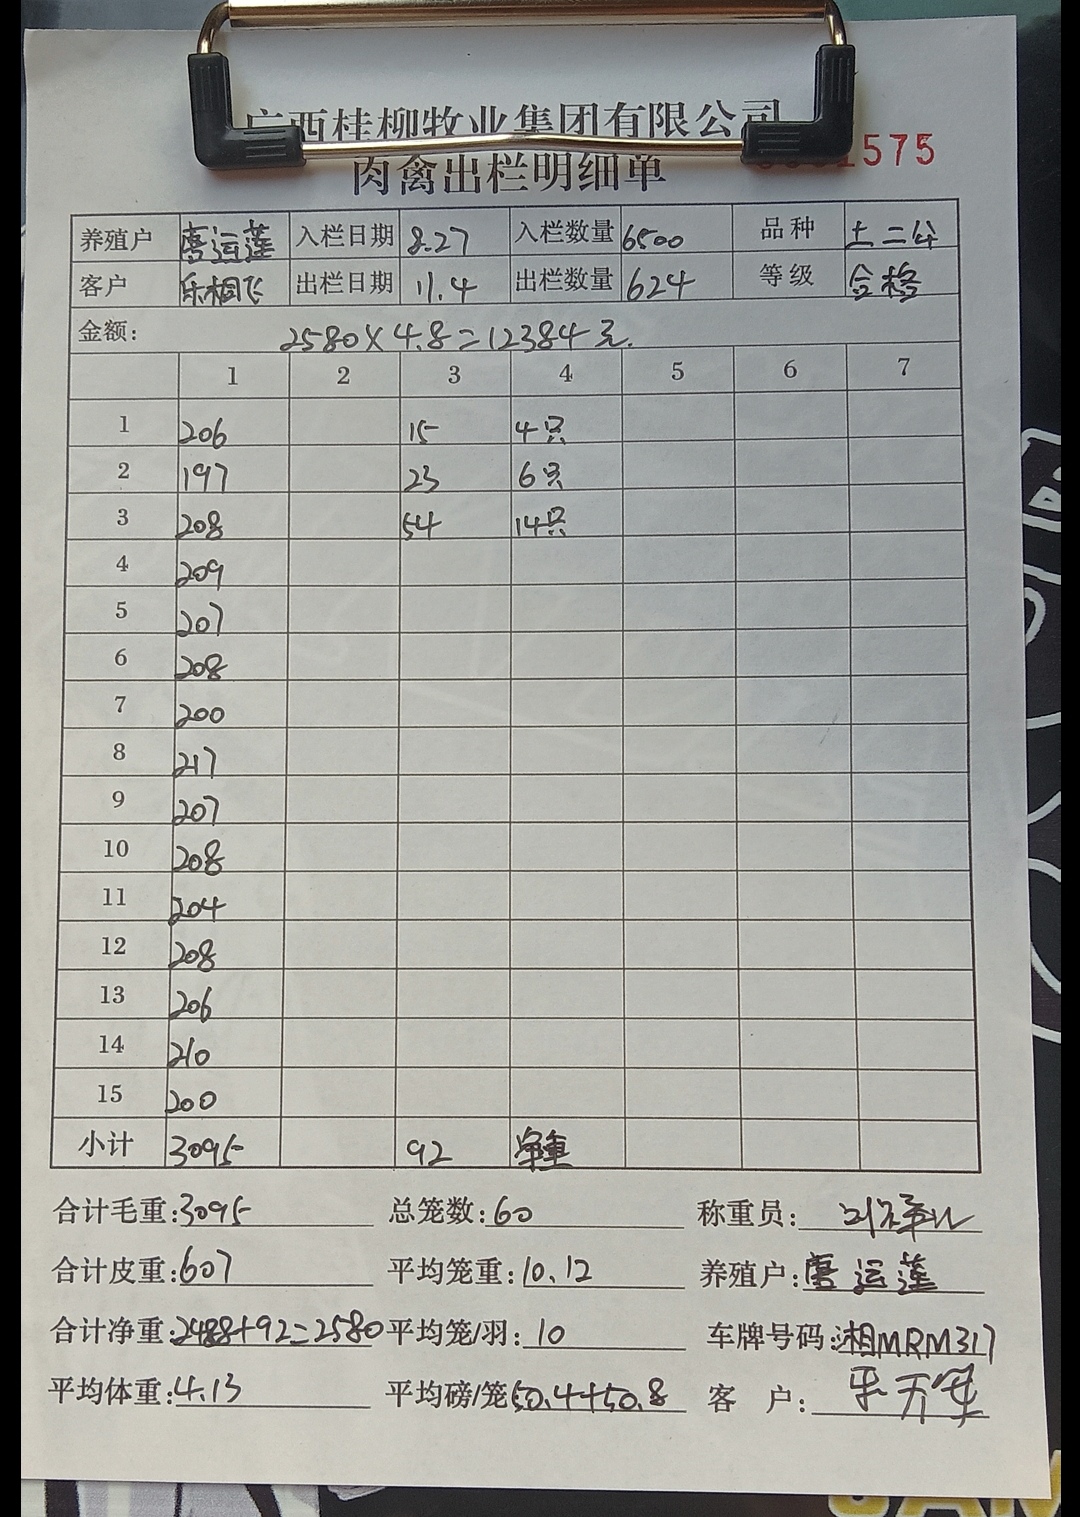 广西桂柳牧业集团有限公司
肉禽出栏明细单
1575
养殖户 唐运莲 入栏日期 8.27 入栏数量 6500 品种 土二公
客户 乐相飞 出栏日期 11.4 出栏数量 624 等级 合格
金额: 2580×4.8=12384元.
1 2 3 4 5 6 7
1 206 15 4只
2 197 23 6只
3 208 54 14只
4 209
5 207
6 208
7 200
8 217
9 207
10 208
11 204
12 208
13 206
14 210
15 200
小计 3095 92 净重
合计毛重:3095 总笼数:60 称重员:
合计皮重:607 平均笼重:10.12 养殖户:唐运莲
合计净重:2488+92=2580 平均笼/羽:10 车牌号码:湘MRM317
平均体重:4.13 平均磅/笼50.4+50.8 客 户: